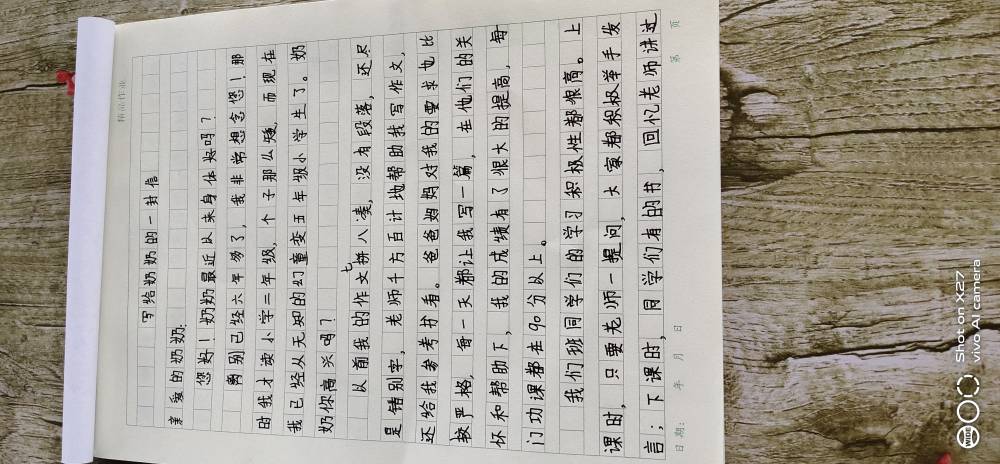 精品作业
写给奶奶的一封信
亲爱的奶奶:
您好!奶奶最近以来身体好吗?
离别已经六年多了,我非常想念您!那
时我才读小学二年级,个子那么矮,而现在
我已经从无知的幻童变五年级小学生了。奶
奶你高兴吗?
以前我的作文七拼八凑,没有段落,还尽
是错别字,老师千方百计地帮助我写作文,
还给我参考书看。爸爸妈妈对我的要求也比
较严格,每一天都让我写一篇,在他们的关
怀和帮助下,我的成绩有了很大的提高,每
门功课都在90分以上。
我们班同学们的学习积极性都很高。上
课时,只要老师一提问,大家都积极举手发
言;下课时,同学们有的书,回忆老师讲过
日期: 年 月 日 第 页
Shot on X27
vivo AI camera